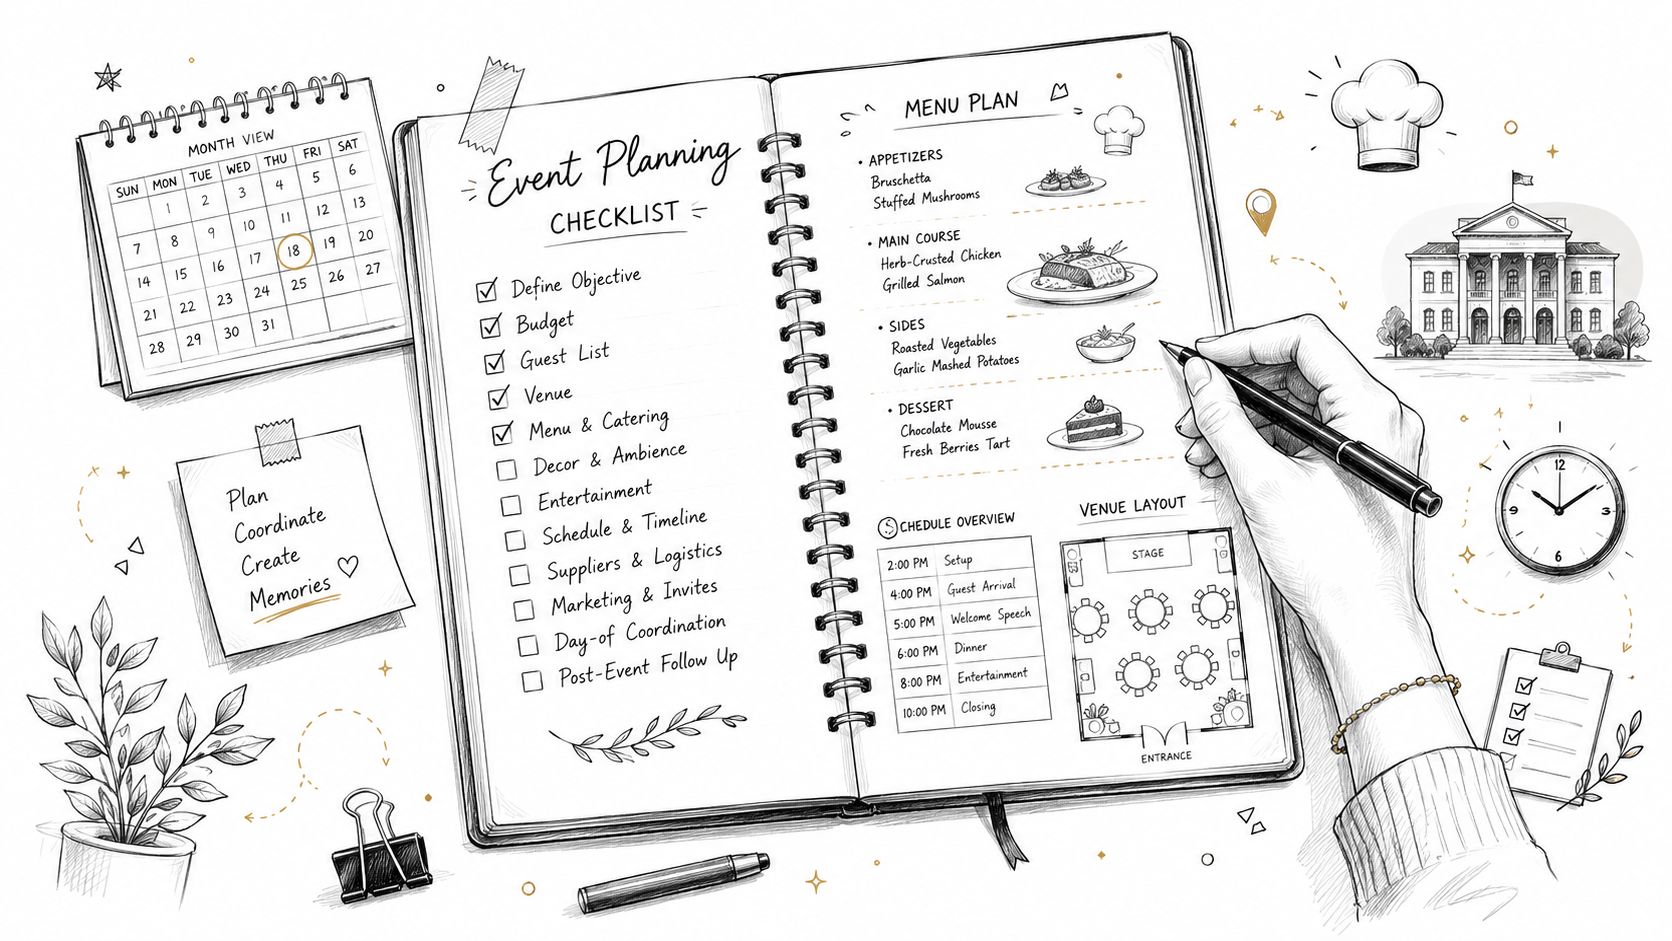 MONTH VIEW
SUN MON TUE WED THU FRI SAT
1 2 3 4 5 6
7 8 9 10 11 12 13
14 15 16 17 18 19 20
21 22 23 24 25 26 27
28 29 30 31
Plan
Coordinate
Create
Memories
Event Planning
CHECKLIST
Define Objective
Budget
Guest List
Venue
Menu & Catering
Decor & Ambience
Entertainment
Schedule & Timeline
Suppliers & Logistics
Marketing & Invites
Day-of Coordination
Post-Event Follow Up
MENU PLAN
• APPETIZERS
Bruschetta
Stuffed Mushrooms
• MAIN COURSE
Herb-Crusted Chicken
Grilled Salmon
• SIDES
Roasted Vegetables
Garlic Mashed Potatoes
• DESSERT
Chocolate Mousse
Fresh Berries Tart
SCHEDULE OVERVIEW
2:00 PM Setup
4:00 PM Guest Arrival
5:00 PM Welcome Speech
6:00 PM Dinner
8:00 PM Entertainment
10:00 PM Closing
VENUE LAYOUT
STAGE
ENTRANCE
12
9 3
6